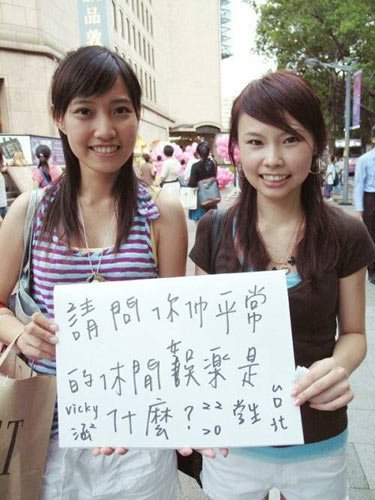 品敦
請問你们平常
的休閒娛楽是
什麼?
vicky 22
涵² 20
学生
台北